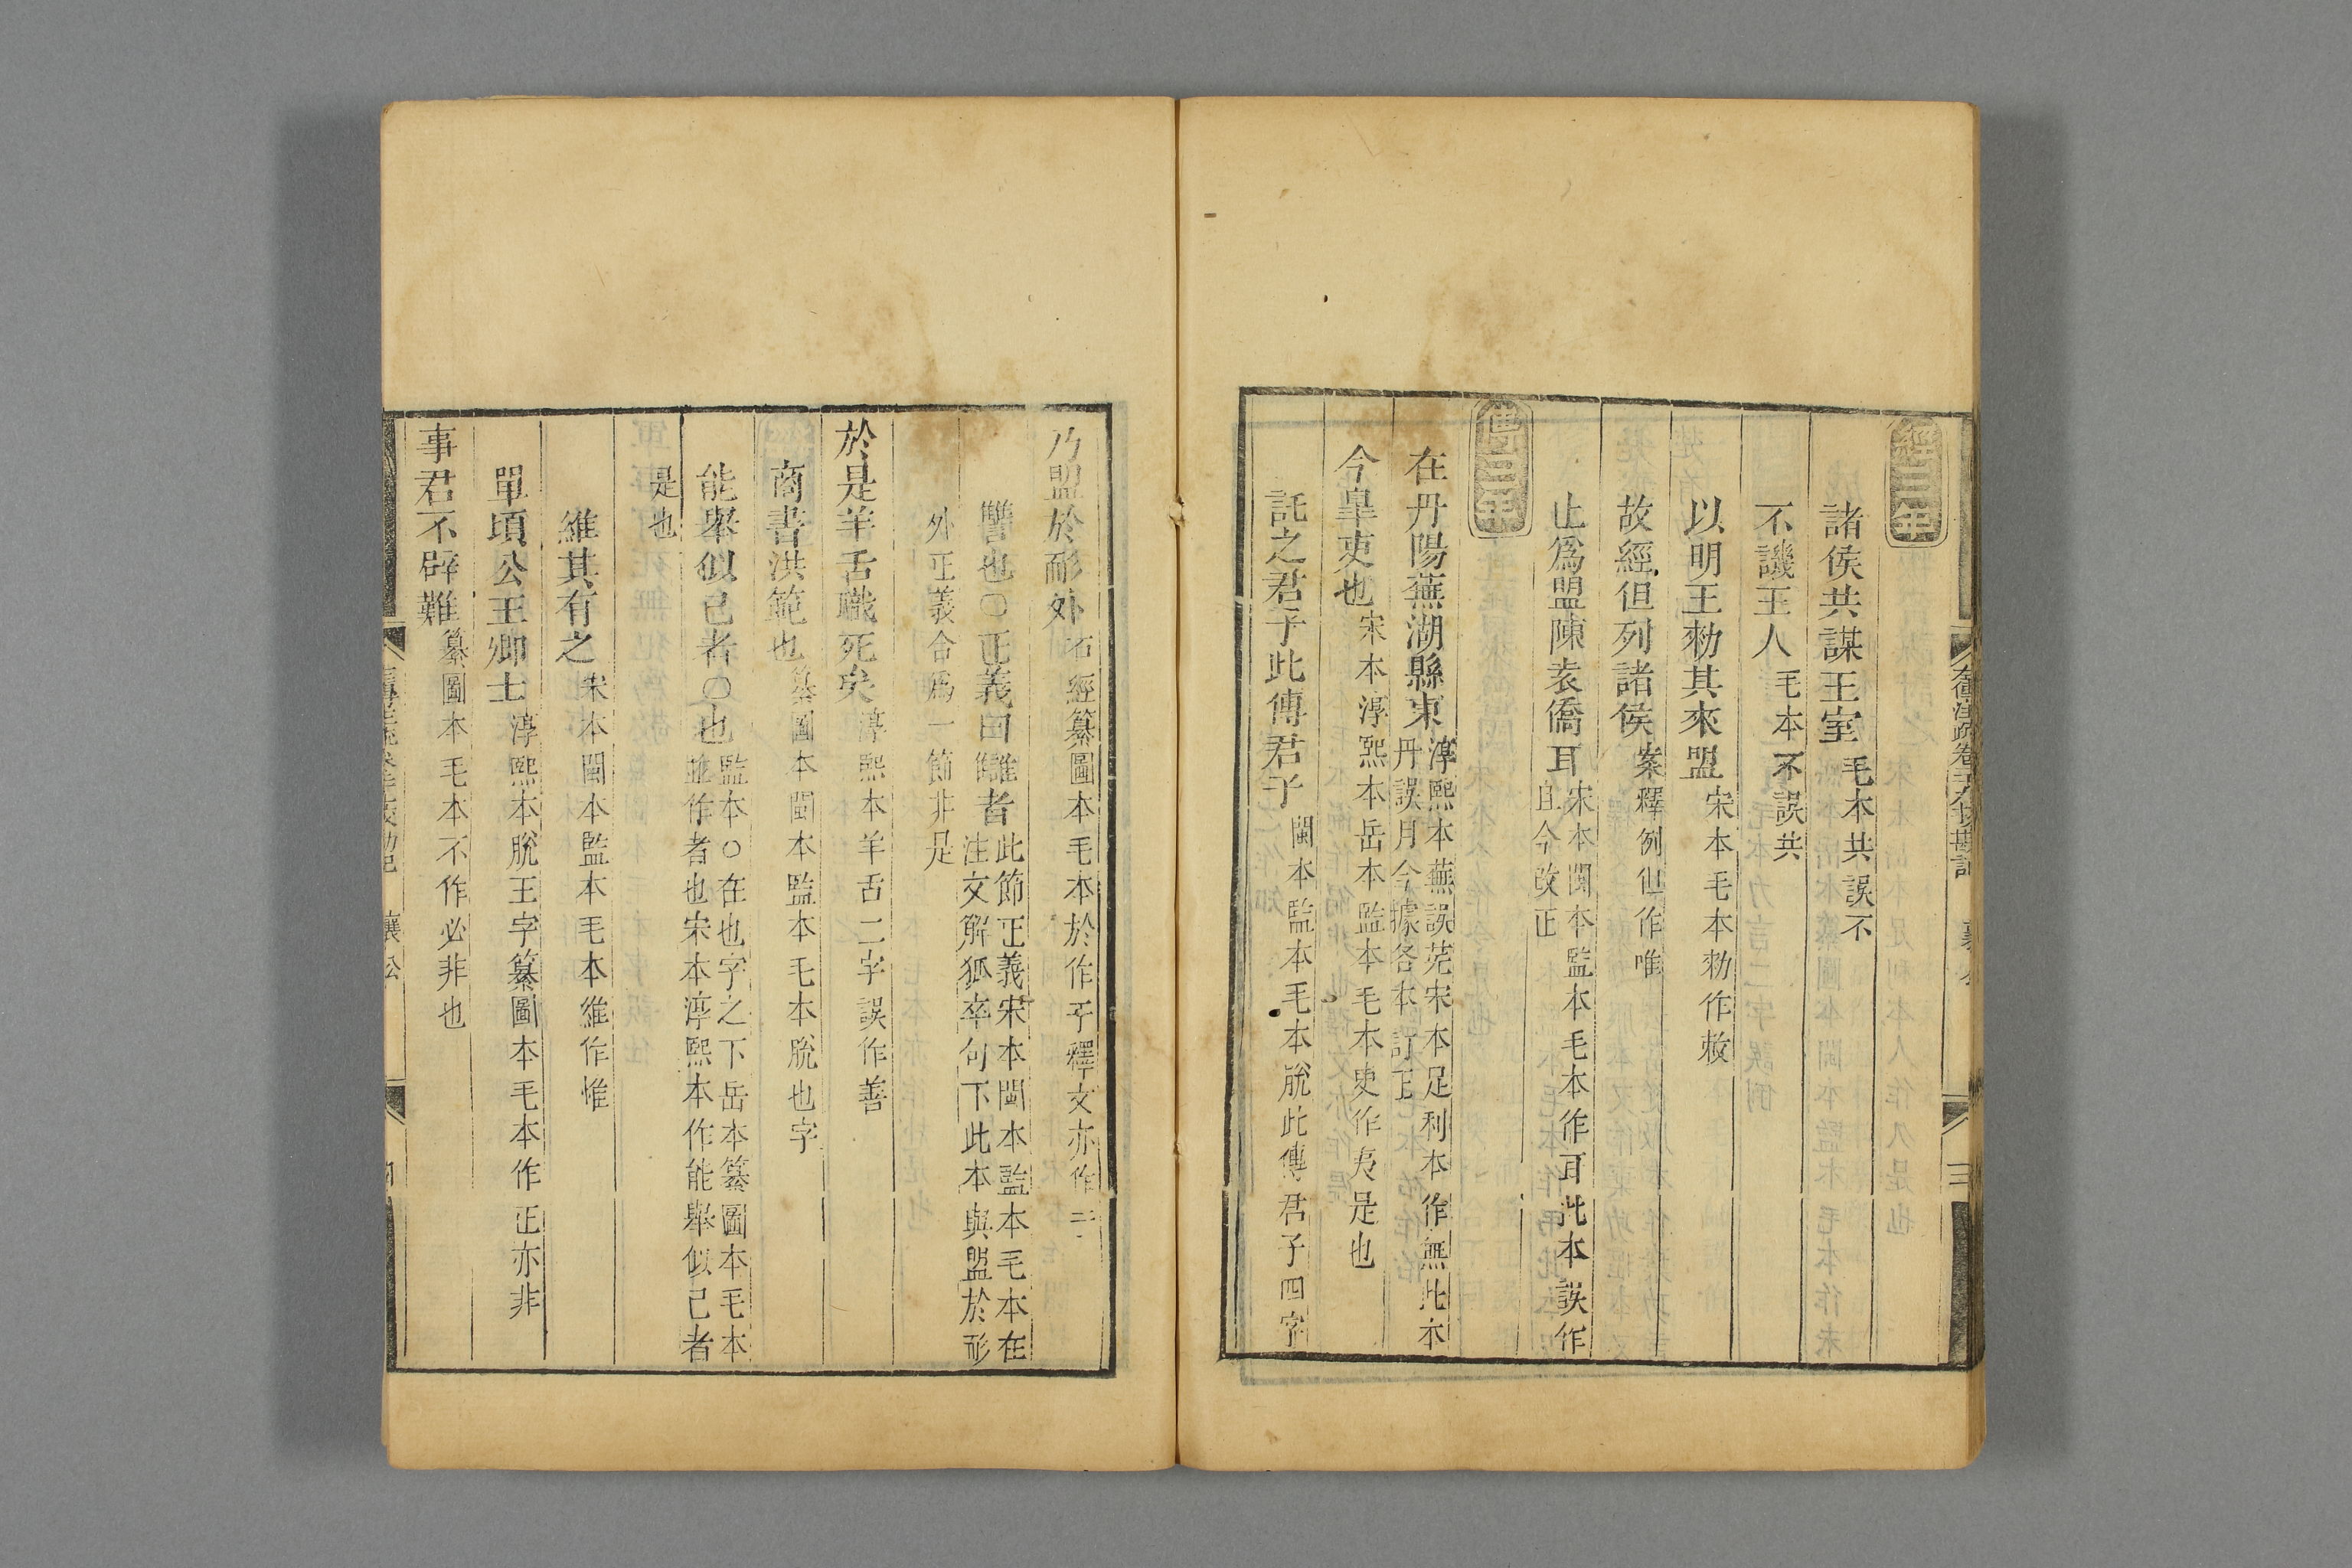 經三年
諸侯共謀王室毛本共誤不
不譏王人毛本不誤共
以明王勑其來盟宋本毛本勑作敕
故經但列諸侯案釋例但作唯
止爲盟陳袁僑耳宋本閩本監本毛本作耳此本誤作
且今改正
傳三年
在丹陽蕪湖縣東淳熙本蕪誤芜宋本足利本作無此本
丹誤月今據各本訂正
今皐吏也宋本淳熙本岳本監本毛本吏作夷是也
託之君子此傳君子閩本監本毛本脫此傳君子四字
乃盟於耏外石經纂圖本毛本於作于釋文亦作于
讐也〇正義曰讎者此節正義宋本閩本監本毛本在
注文解狐卒句下此本與盟於耏
外正義合爲一節非是
於是羊舌職死矣淳熙本羊舌二字誤作善
商書洪範也纂圖本閩本監本毛本脫也字
能舉似己者〇也監本〇在也字之下岳本纂圖本毛本
並作者也宋本淳熙本作能舉似己者
是也
維其有之宋本閩本監本毛本維作惟
單頃公王卿士淳熙本脫王字纂圖本毛本作正亦非
事君不辟難纂圖本毛本不作必非也